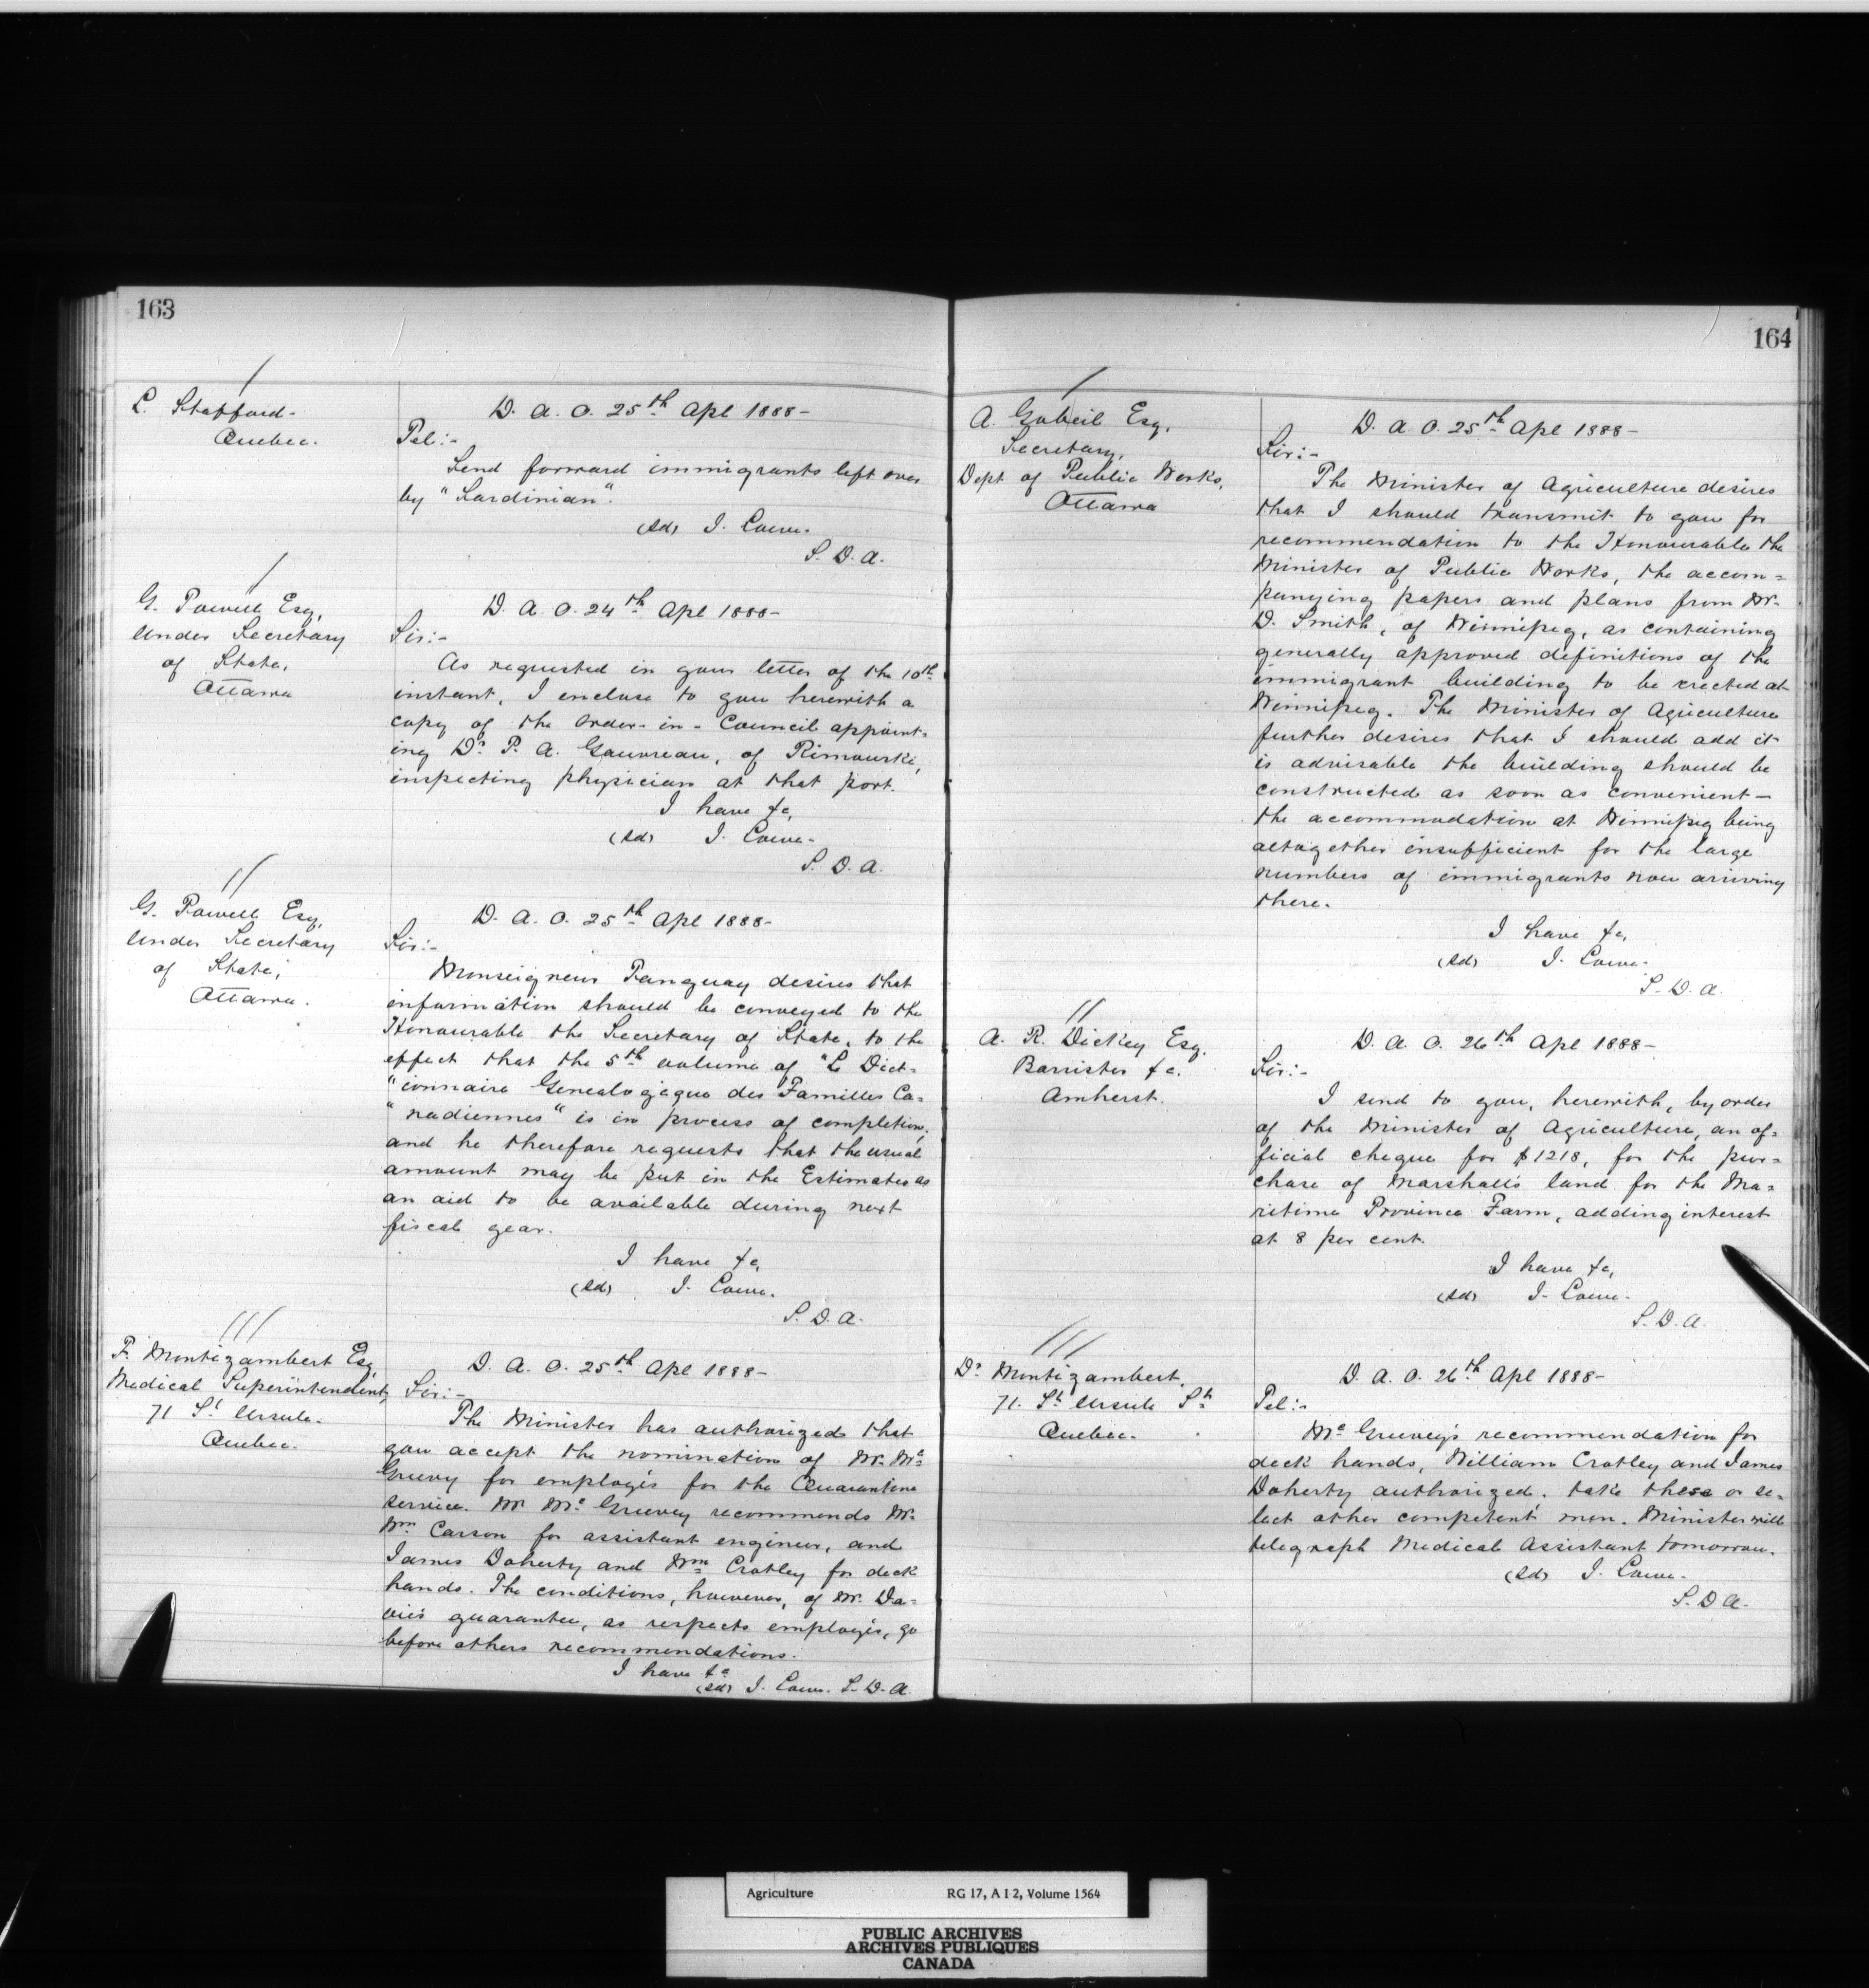 163
L. Stafford-
Quebec.
D. A. O. 25th Apl 1888-
Tel:-
Send forward immigrants left over
by "Sardinian".
(Sd) J. Lowe.
S. D. A.
G. Powell Esq,
Under Secretary
of State,
Ottawa
D. A. O. 24th Apl 1888-
Sir:-
As requested in your letter of the 10th
instant, I enclose to you herewith a
copy of the Order-in-Council appoint=
ing Dr P. A. Gauvreau, of Rimouski,
inspecting physician at that port.
I have &c,
(Sd) J. Lowe-
S. D. A.
G. Powell Esq,
Under Secretary
of State,
Ottawa.
D. A. O. 25th Apl 1888-
Sir:-
Monseigneur Tanguay desires that
information should be conveyed to the
Honourable the Secretary of State, to the
effect that the 5th volume of "Le Dict=
"ionnaire Genealogique des Familles Ca=
"nadiennes" is in process of completion,
and he therefore requests that the usual
amount may be put in the Estimates as
an aid to be available during next
fiscal year.
I have &c,
(Sd) J. Lowe.
S. D. A.
F. Montizambert Esq,
Medical Superintendent,
71 St Ursule.
Quebec.
D. A. O. 25th Apl 1888-
Sir:-
The Minister has authorized that
you accept the nomination of Mr. Mc
Greevy for employés for the Quarantine
service. Mr Mc Greevey recommends Mr.
Wm Carson for assistant engineer, and
James Doherty and Wm Cratley for deck
hands. The conditions, however, of Mr. Da=
vie's guarantee, as respects employés, go
before others recommendations.
I have &c
(Sd) J. Lowe. S. D. A.
164
A. Gobeil Esq,
Secretary,
Dept of Public Works,
Ottawa
D. A. O. 25th Apl 1888-
Sir:-
The Minister of Agriculture desires
that I should transmit to you for
recommendation to the Honourable the
Minister of Public Works, the accom=
panying papers and plans from Mr.
D. Smith, of Winnipeg, as containing
generally approved definitions of the
immigrant building to be erected at
Winnipeg. The Minister of Agriculture
further desires that I should add it
is advisable the building should be
constructed as soon as convenient-
the accommodation at Winnipeg being
altogether insufficient for the large
numbers of immigrants now arriving
there.
I have &c,
(Sd) J. Lowe-
S. D. A.
A. R. Dickey Esq.
Barrister &c.
Amherst.
D. A. O. 26th Apl 1888-
Sir:-
I send to you, herewith, by order
of the Minister of Agriculture, an of=
ficial cheque for $1218, for the pur=
chase of Marshall's land for the Ma=
ritime Province Farm, adding interest
at 8 per cent.
I have &c,
(Sd) J. Lowe-
S. D. A.
Dr Montizambert,
71. St Ursule St
Quebec.
D. A. O. 26th Apl 1888-
Tel:-
Mc Greevey's recommendation for
deck hands, William Cratley and James
Doherty authorized, take these or se-
lect other competent men. Minister will
telegraph Medical Assistant tomorrow.
(Sd) J. Lowe-
S. D A.
Agriculture RG 17, A I 2, Volume 1564
PUBLIC ARCHIVES
ARCHIVES PUBLIQUES
CANADA